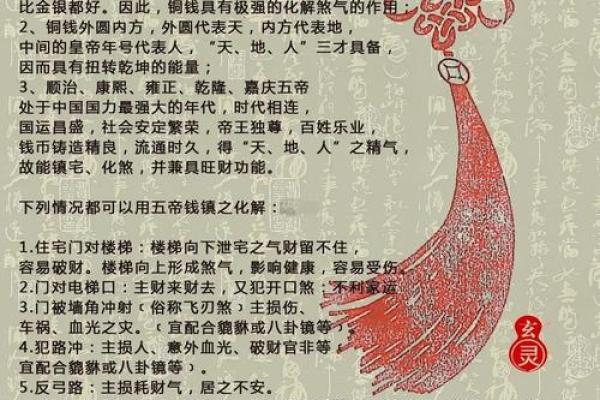 比金银都好。因此，铜钱具有极强的化解煞气的作用；
2、铜钱外圆内方，外圆代表天，内方代表地，
中间的皇帝年号代表人，“天、地、人”三才具备，
因而具有扭转乾坤的能量；
3、顺治、康熙、雍正、乾隆、嘉庆五帝
处于中国国力最强大的年代，时代相连，
国运昌盛，社会安定繁荣，帝王独尊，百姓乐业，
钱币铸造精良，流通时久，得“天、地、人”之精气，
故能镇宅、化煞，并兼具旺财功能。
下列情况都可以用五帝钱镇之化解：
1.住宅门对楼梯：楼梯向下泄宅之气财留不住，
容易破财。楼梯向上形成煞气，影响健康，容易受伤。
2.门对电梯口：主财来财去，又犯开口煞：不利家运
3.门被墙角冲射﹙俗称飞刃煞﹚主损伤、
车祸、血光之灾。﹙宜配合貔貅或八卦镜等﹚.
4.犯路冲：主损人、意外血光、破财官非等﹙
宜配合貔貅或八卦镜等﹚.
5.反弓路：主损耗财气，居之不安。
玄
灵